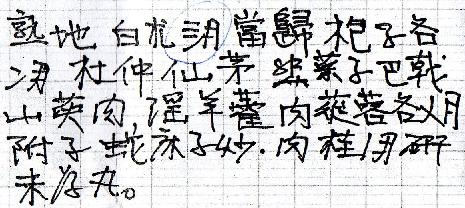 熟地 白朮 當歸 杞子各
杜仲 仙茅 韭菜子巴戟
山萸肉,淫羊藿 肉蓯蓉各
附子 蛇床子炒.肉桂 研
末為丸。